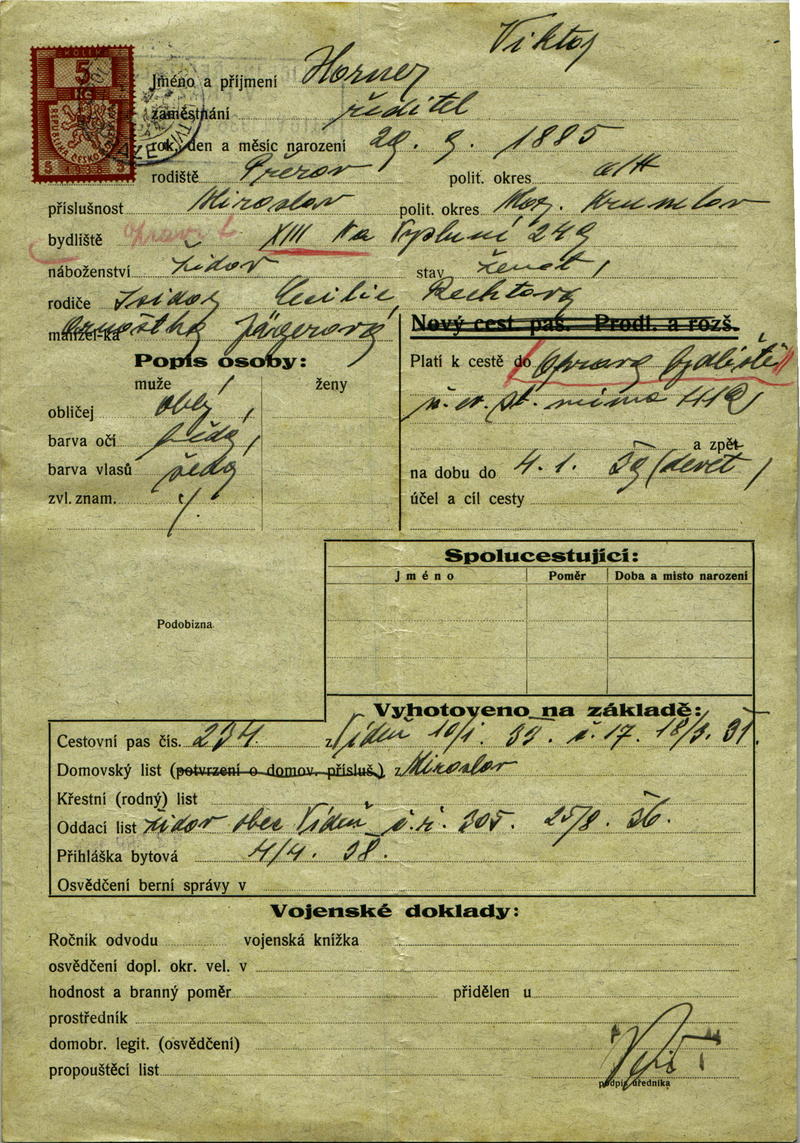 Viktor
5
Kč
REPUBLIKA ČESKOSLOVENSKÁ
5 1938 5
Jméno a příjmení Horner
zaměstnání ředitel
rok, den a měsíc narození 29. 9. 1885
rodiště Přerov polit. okres
příslušnost Miroslav polit. okres Mor. Krumlov
bydliště XIII Na Výsluní 249
náboženství židov stav ženat,
rodiče Isidor Cecilie, Rechtová
manžel-ka Ernoštka Jägerová
Nový cest. pas. Prodl. a rozš.
Popis osoby:
Platí k cestě do oprava bydliště
muže ženy
obličej oblý,
barva očí
a zpět
barva vlasů šedá
na dobu do 4. 1. 39
zvl. znam.
účel a cíl cesty
Spolucestující:
Jméno Poměr Doba a misto narození
Podobizna
Vyhotoveno na základě:
Cestovní pas čís. 234. z Vídeň 10/1. 33. č. 17. 18/3. 31.
Domovský list (potvrzení o domov. přísluš.) z Miroslav
Křestní (rodný) list
Oddací list židov obec Vídeň č. ř. 305. 25/8. 36.
Přihláška bytová 4/4. 38.
Osvědčení berní správy v
Vojenské doklady:
Ročník odvodu vojenská knížka
osvědčení dopl. okr. vel. v
hodnost a branný poměr přidělen u
prostředník
domobr. legit. (osvědčení)
propouštěcí list
podpis úředníka